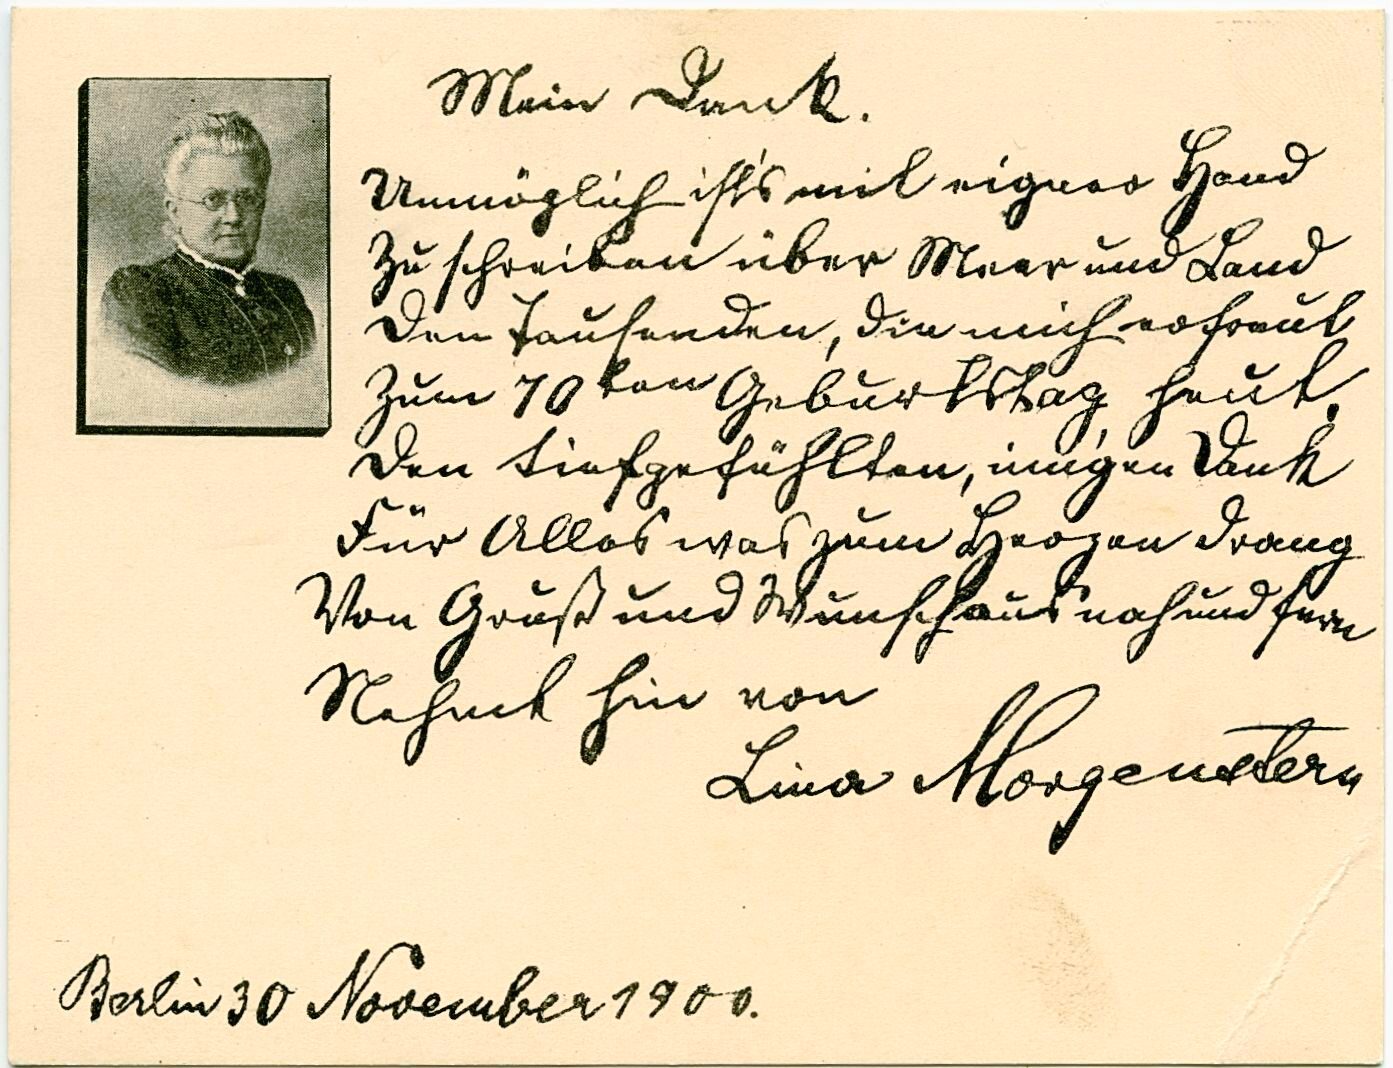 Mein Dank.
Unmöglich ist's mit eigner Hand
Zu schreiben über Meer und Land
Den Tausenden, die mich erfreut
Zum 70ten Geburtstag heut.
Den tiefgefühlten, innigen Dank
Für Alles was zum Herzen drang
Von Gruß und Wunsch aus nah und fern
Nehmt hin von
Lina Morgenstern
Berlin 30 November 1900.